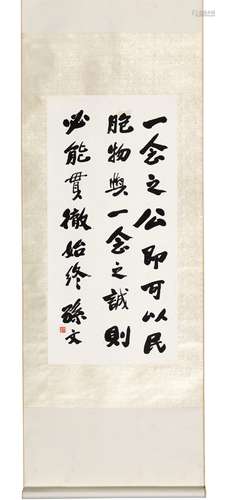 一念之公即可以民
胞物與一念之誠則
必能貫徹始終孫文